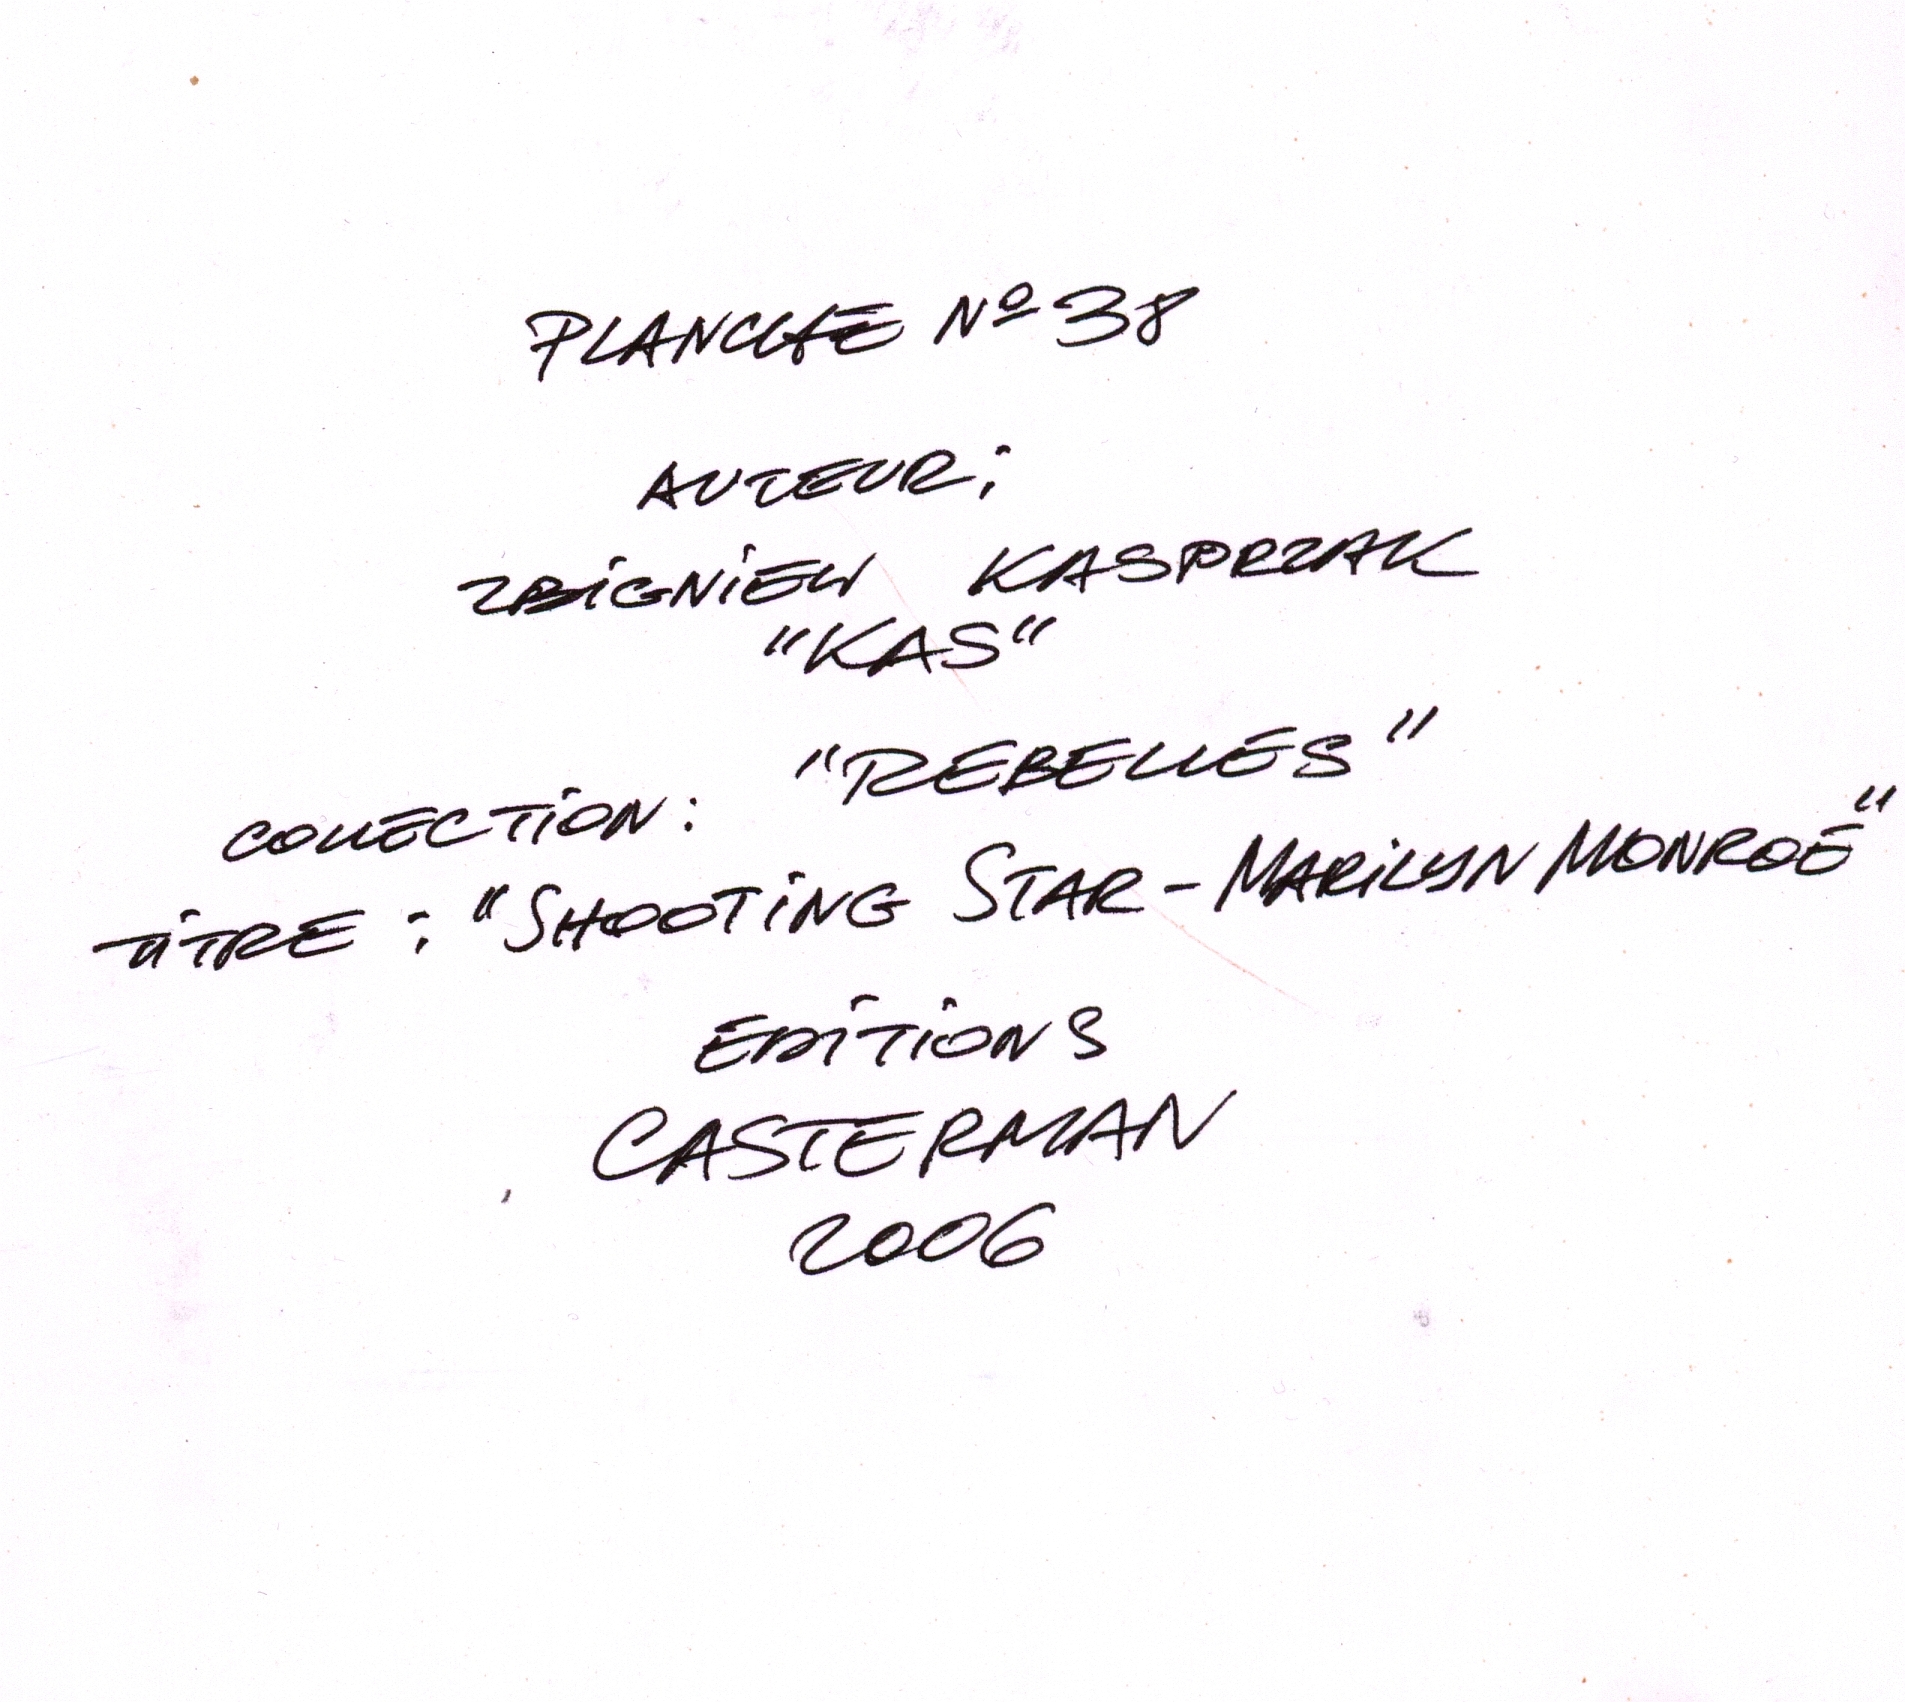 PLANCHE Nº 38
AUTEUR:
ZBIGNIEW KASPRZAK
"KAS"
COLLECTION: "REBELLES"
TITRE: "SHOOTING STAR - MARILYN MONROE"
EDITIONS
CASTERMAN
2006